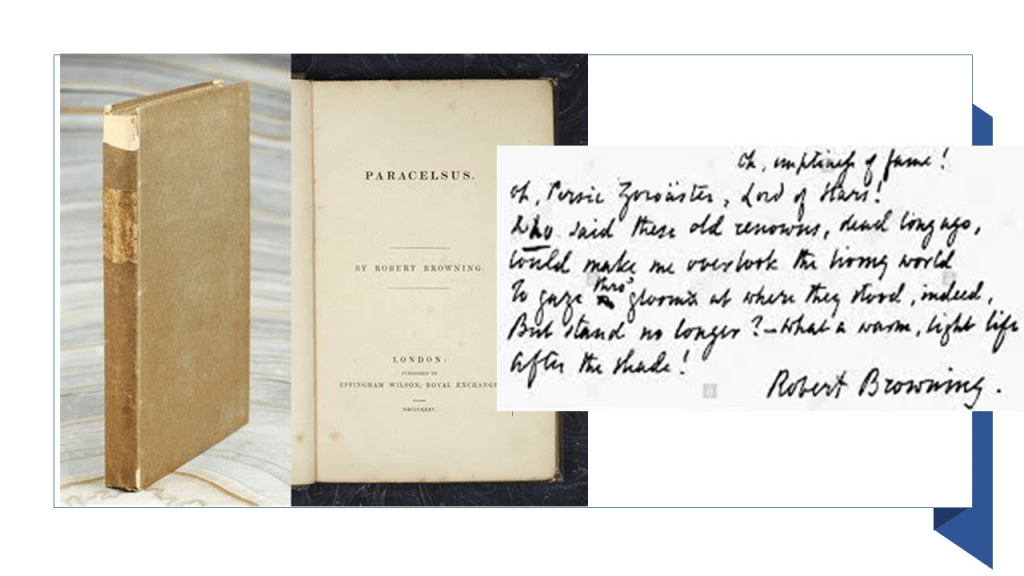 PARACELSUS.
BY ROBERT BROWNING
LONDON:
PUBLISHED BY
EFFINGHAM WILSON, ROYAL EXCHANGE
MDCCCXXXV.
Oh, emptiness of fame!
Oh, Persic Zoroaster, Lord of Stars!
Who said these old renowns, dead long ago,
Could make me overlook the living world
To gaze thro' gloom at where they stood, indeed,
But stand no longer? – What a warm, light life
After the shade!
Robert Browning.